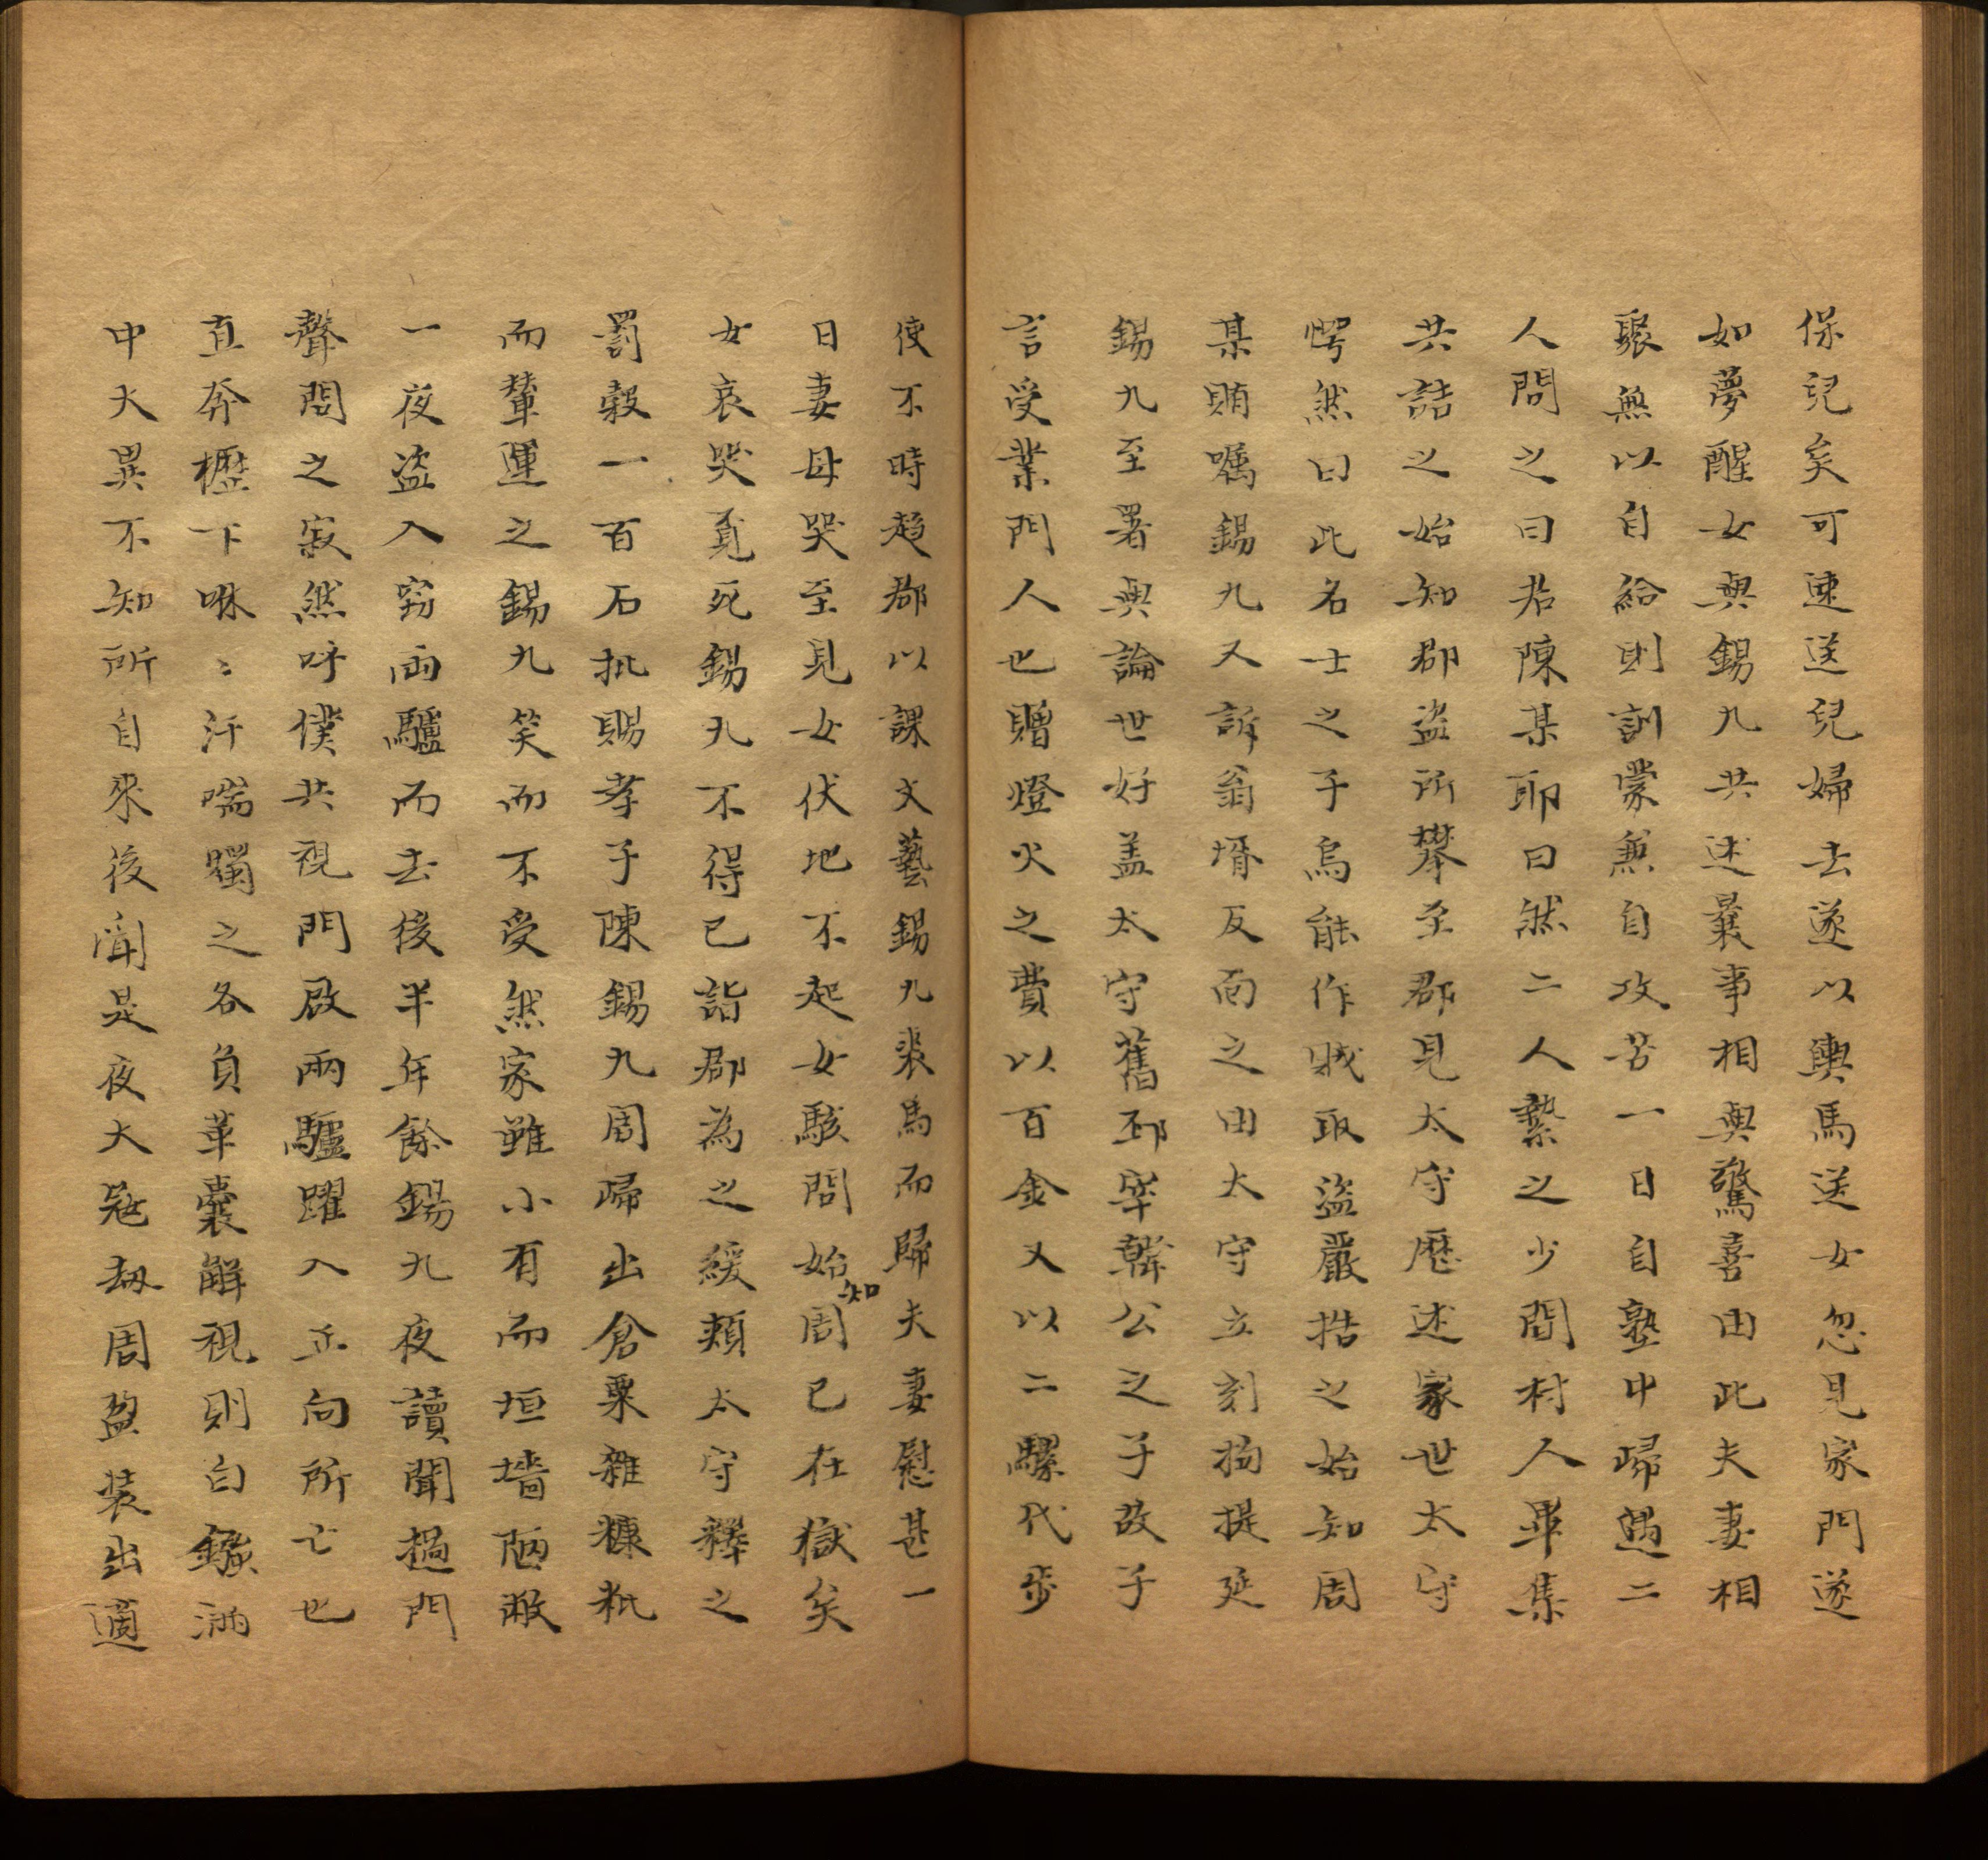 保兒矣可速送兒婦去遂以輿馬送女忽見家門遂
如夢醒女與錫九共述曩事相與驚喜由此夫妻相
聚無以自給則訓蒙兼自攻苦一日自塾中歸遇二
人問之曰君陳某耶曰然二人縶之少間村人畢集
共詰之始知郡盜所攀至郡見太守歷述家世太守
愕然曰此名士之子烏能作賊取盜嚴拷之始知周
某賄囑錫九又訴翁壻反面之由太守立刻拘提延
錫九至署與論世好盖太守舊邳宰韓公之子故子
言受業門人也贈燈火之費以百金又以二騾代步
使不時趋郡以課文藝錫九裘馬而歸夫妻慰甚一
日妻母哭至見女伏地不起女駭問始知周已在獄矣
女哀哭覓死錫九不得已詣郡為之緩頰太守釋之
罰穀一百石批賜孝子陳錫九周歸出倉粟雜糠粃
而輦運之錫九笑而不受然家雖小有而垣墻陋敝
一夜盜入窃両驢而去後半年餘錫九夜讀聞撾門
聲問之寂然呼僕共視門啟兩驢躍入正向所亡也
直奔櫪下咻〻汗喘燭之各負革囊觧視則白鏹滿
中大異不知所自來後聞是夜大宼刼周盈装出適